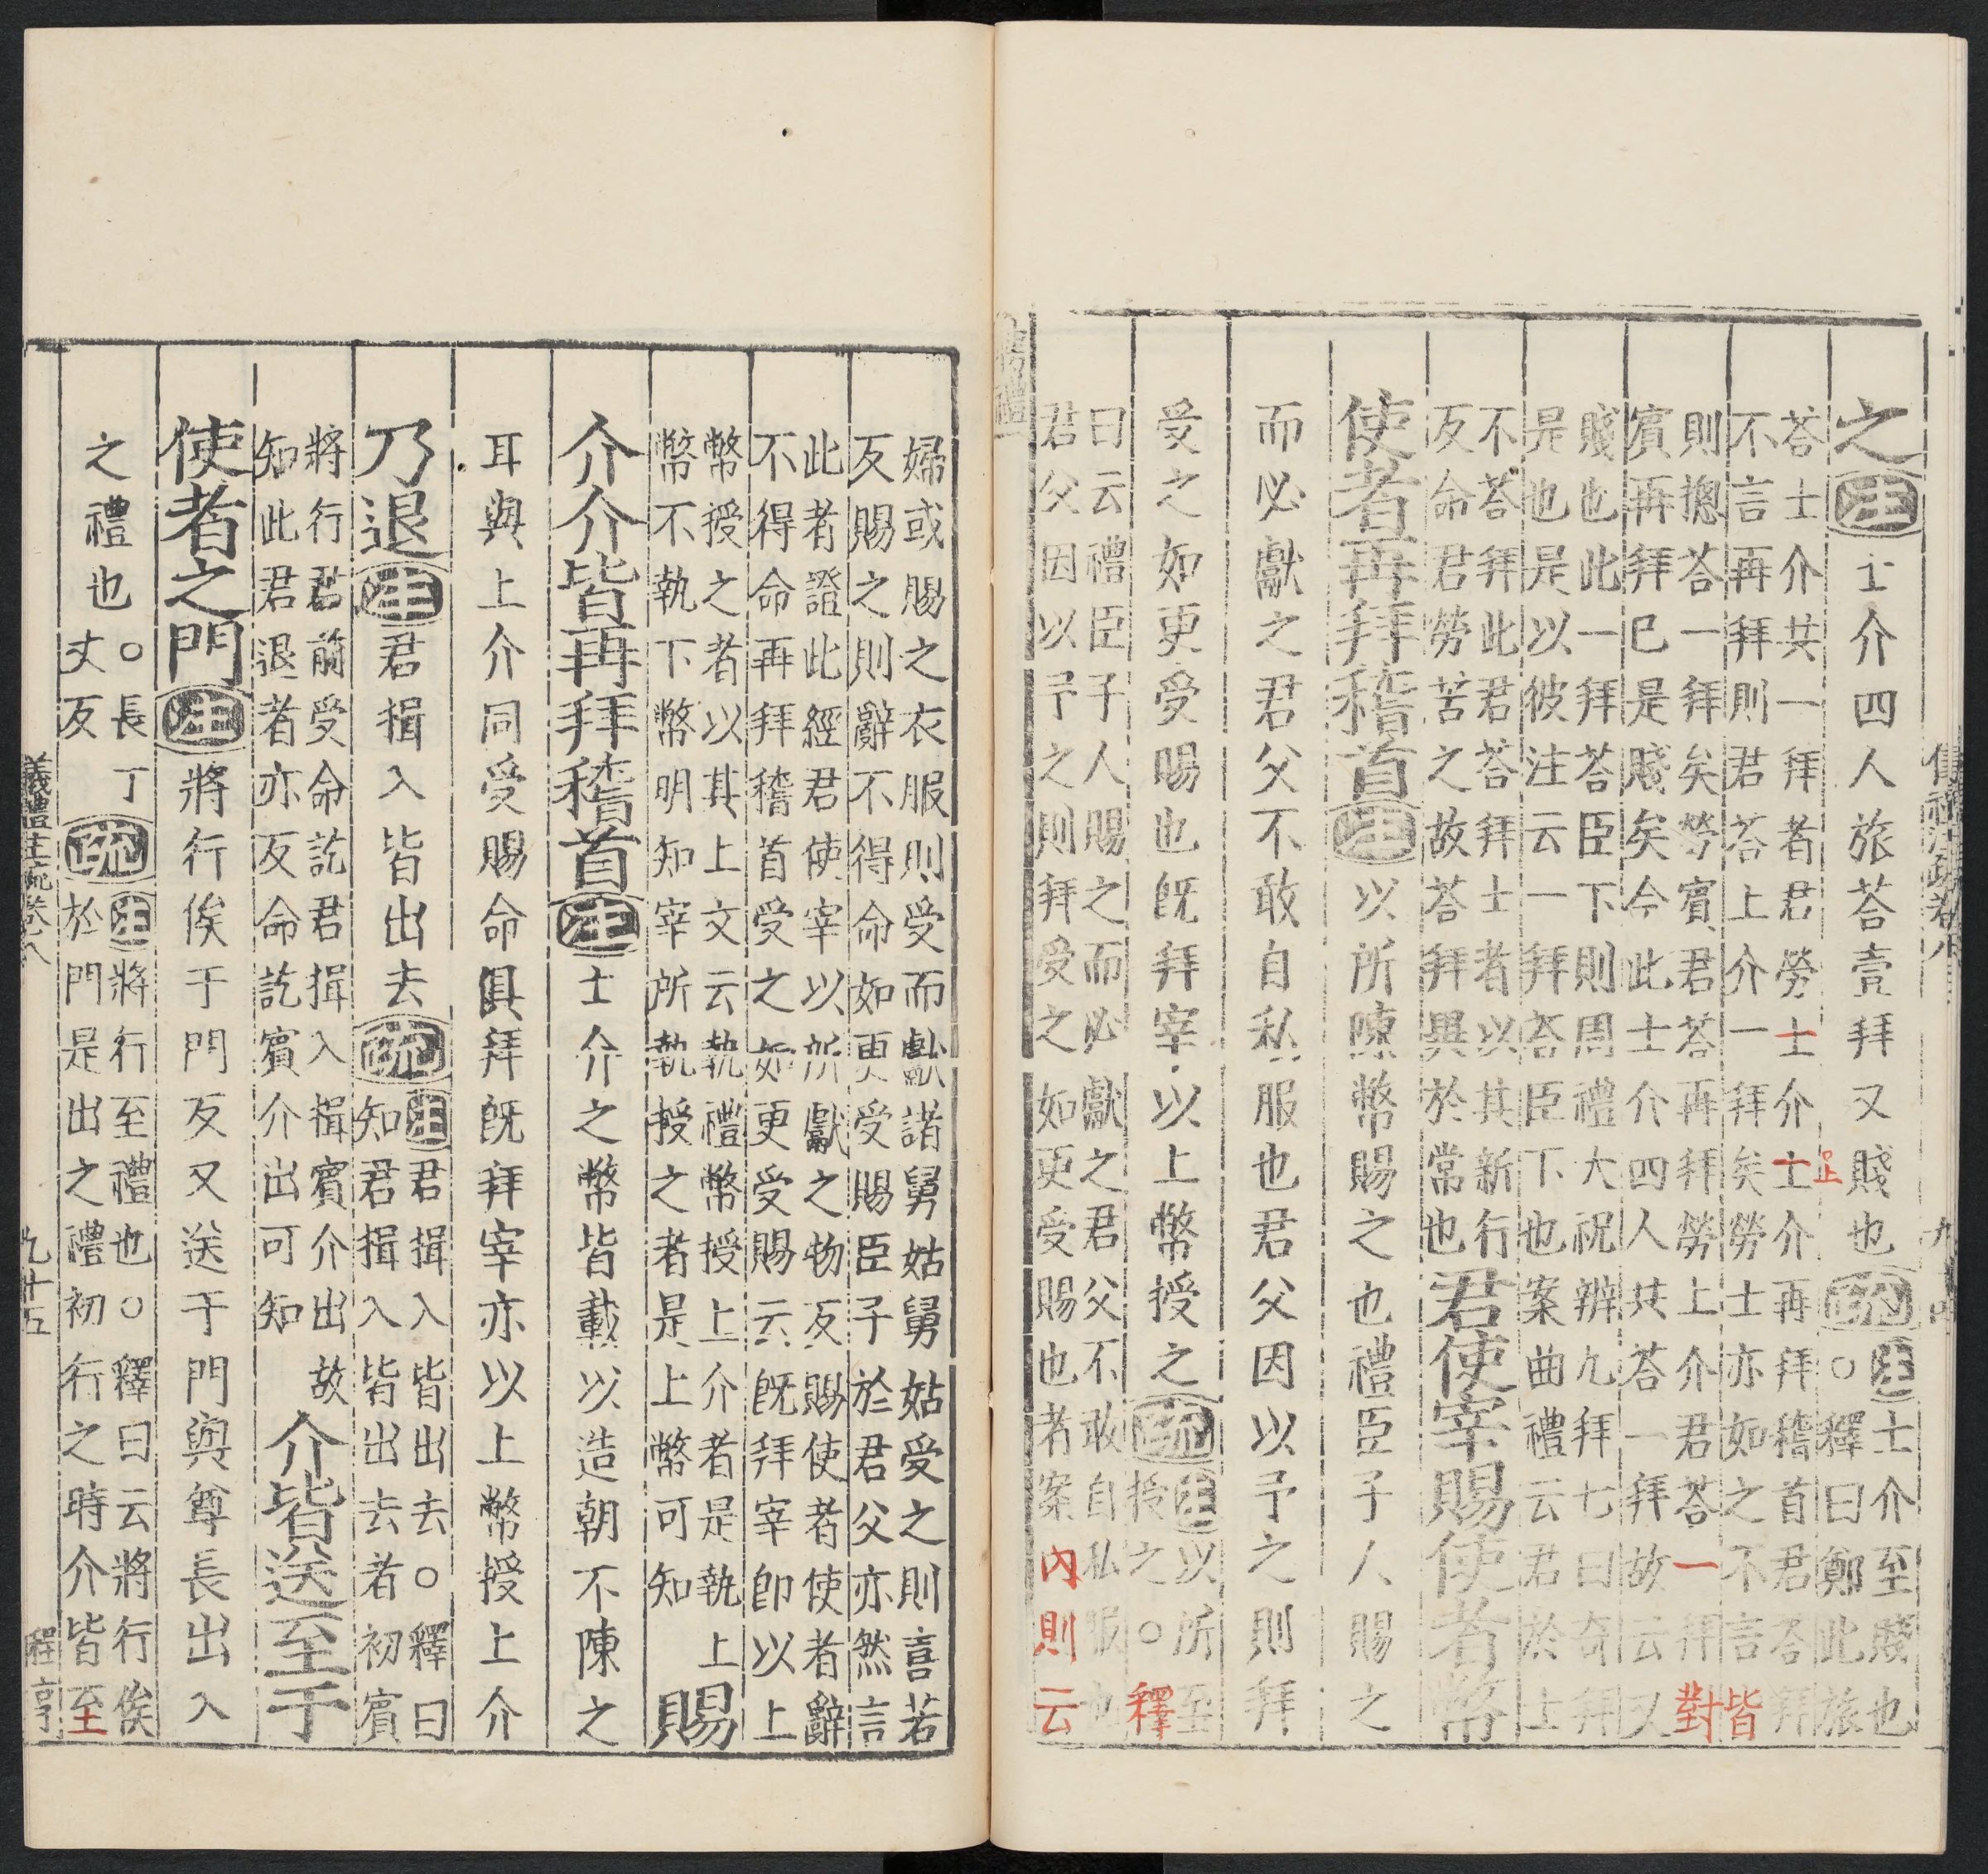 之注士介四人旅荅壹拜又賤也疏
注士介至賤也
○釋曰鄭此旅
荅士介共一拜者君勞士介士介再拜稽首君荅拜
不言再拜則君荅上介一拜矣勞士亦如之不言皆
則摠荅一拜矣勞賓君荅再拜勞上介君荅一拜對
賓再拜已是賤矣今此士介四人共荅一拜故云又
賤也此一拜荅臣下則周禮大祝辨九拜七曰奇拜
是也是以彼注云一拜荅臣下也案曲禮云君於士
不荅拜此君荅拜士者以其新行
反命君勞苦之故荅拜異於常也
君使宰賜使者幣
使者再拜稽首注以所陳幣賜之也禮臣子人賜之
而必獻之君父不敢自私服也君父因以予之則拜
受之如更受賜也既拜宰以上幣授之疏
注以所至
授之○釋
曰云禮臣子人賜之而必獻之君父不敢自私服也
君父因以予之則拜受之如更受賜也者案內則云
婦或賜之衣服則受而獻諸舅姑舅姑受之則喜若
反賜之則辭不得命如更受賜臣子於君父亦然言
此者證此經君使宰以所獻之物反賜使者使者辭
不得命再拜稽首受之如更受賜云既拜宰即以上
幣授之者以其上文云執禮幣授上介者是執上
幣不執下幣明知宰所執授之者是上幣可知
賜
介介皆再拜稽首注士介之幣皆載以造朝不陳之
耳與上介同受賜命俱拜既拜宰亦以上幣授上介
乃退注君揖入皆出去疏
注君揖入皆出去○釋曰
知君揖入皆出去者初賓
將行君前受命訖君揖入揖賓介出故
知此君退者亦反命訖賓介出可知
介皆送至于
使者之門注將行俟于門反又送于門與尊長出入
之禮也
○長丁
丈反
疏
注將行至禮也○釋曰云將行俟
於門是出之禮初行之時介皆至
儀禮注疏卷八
九十五
程亨